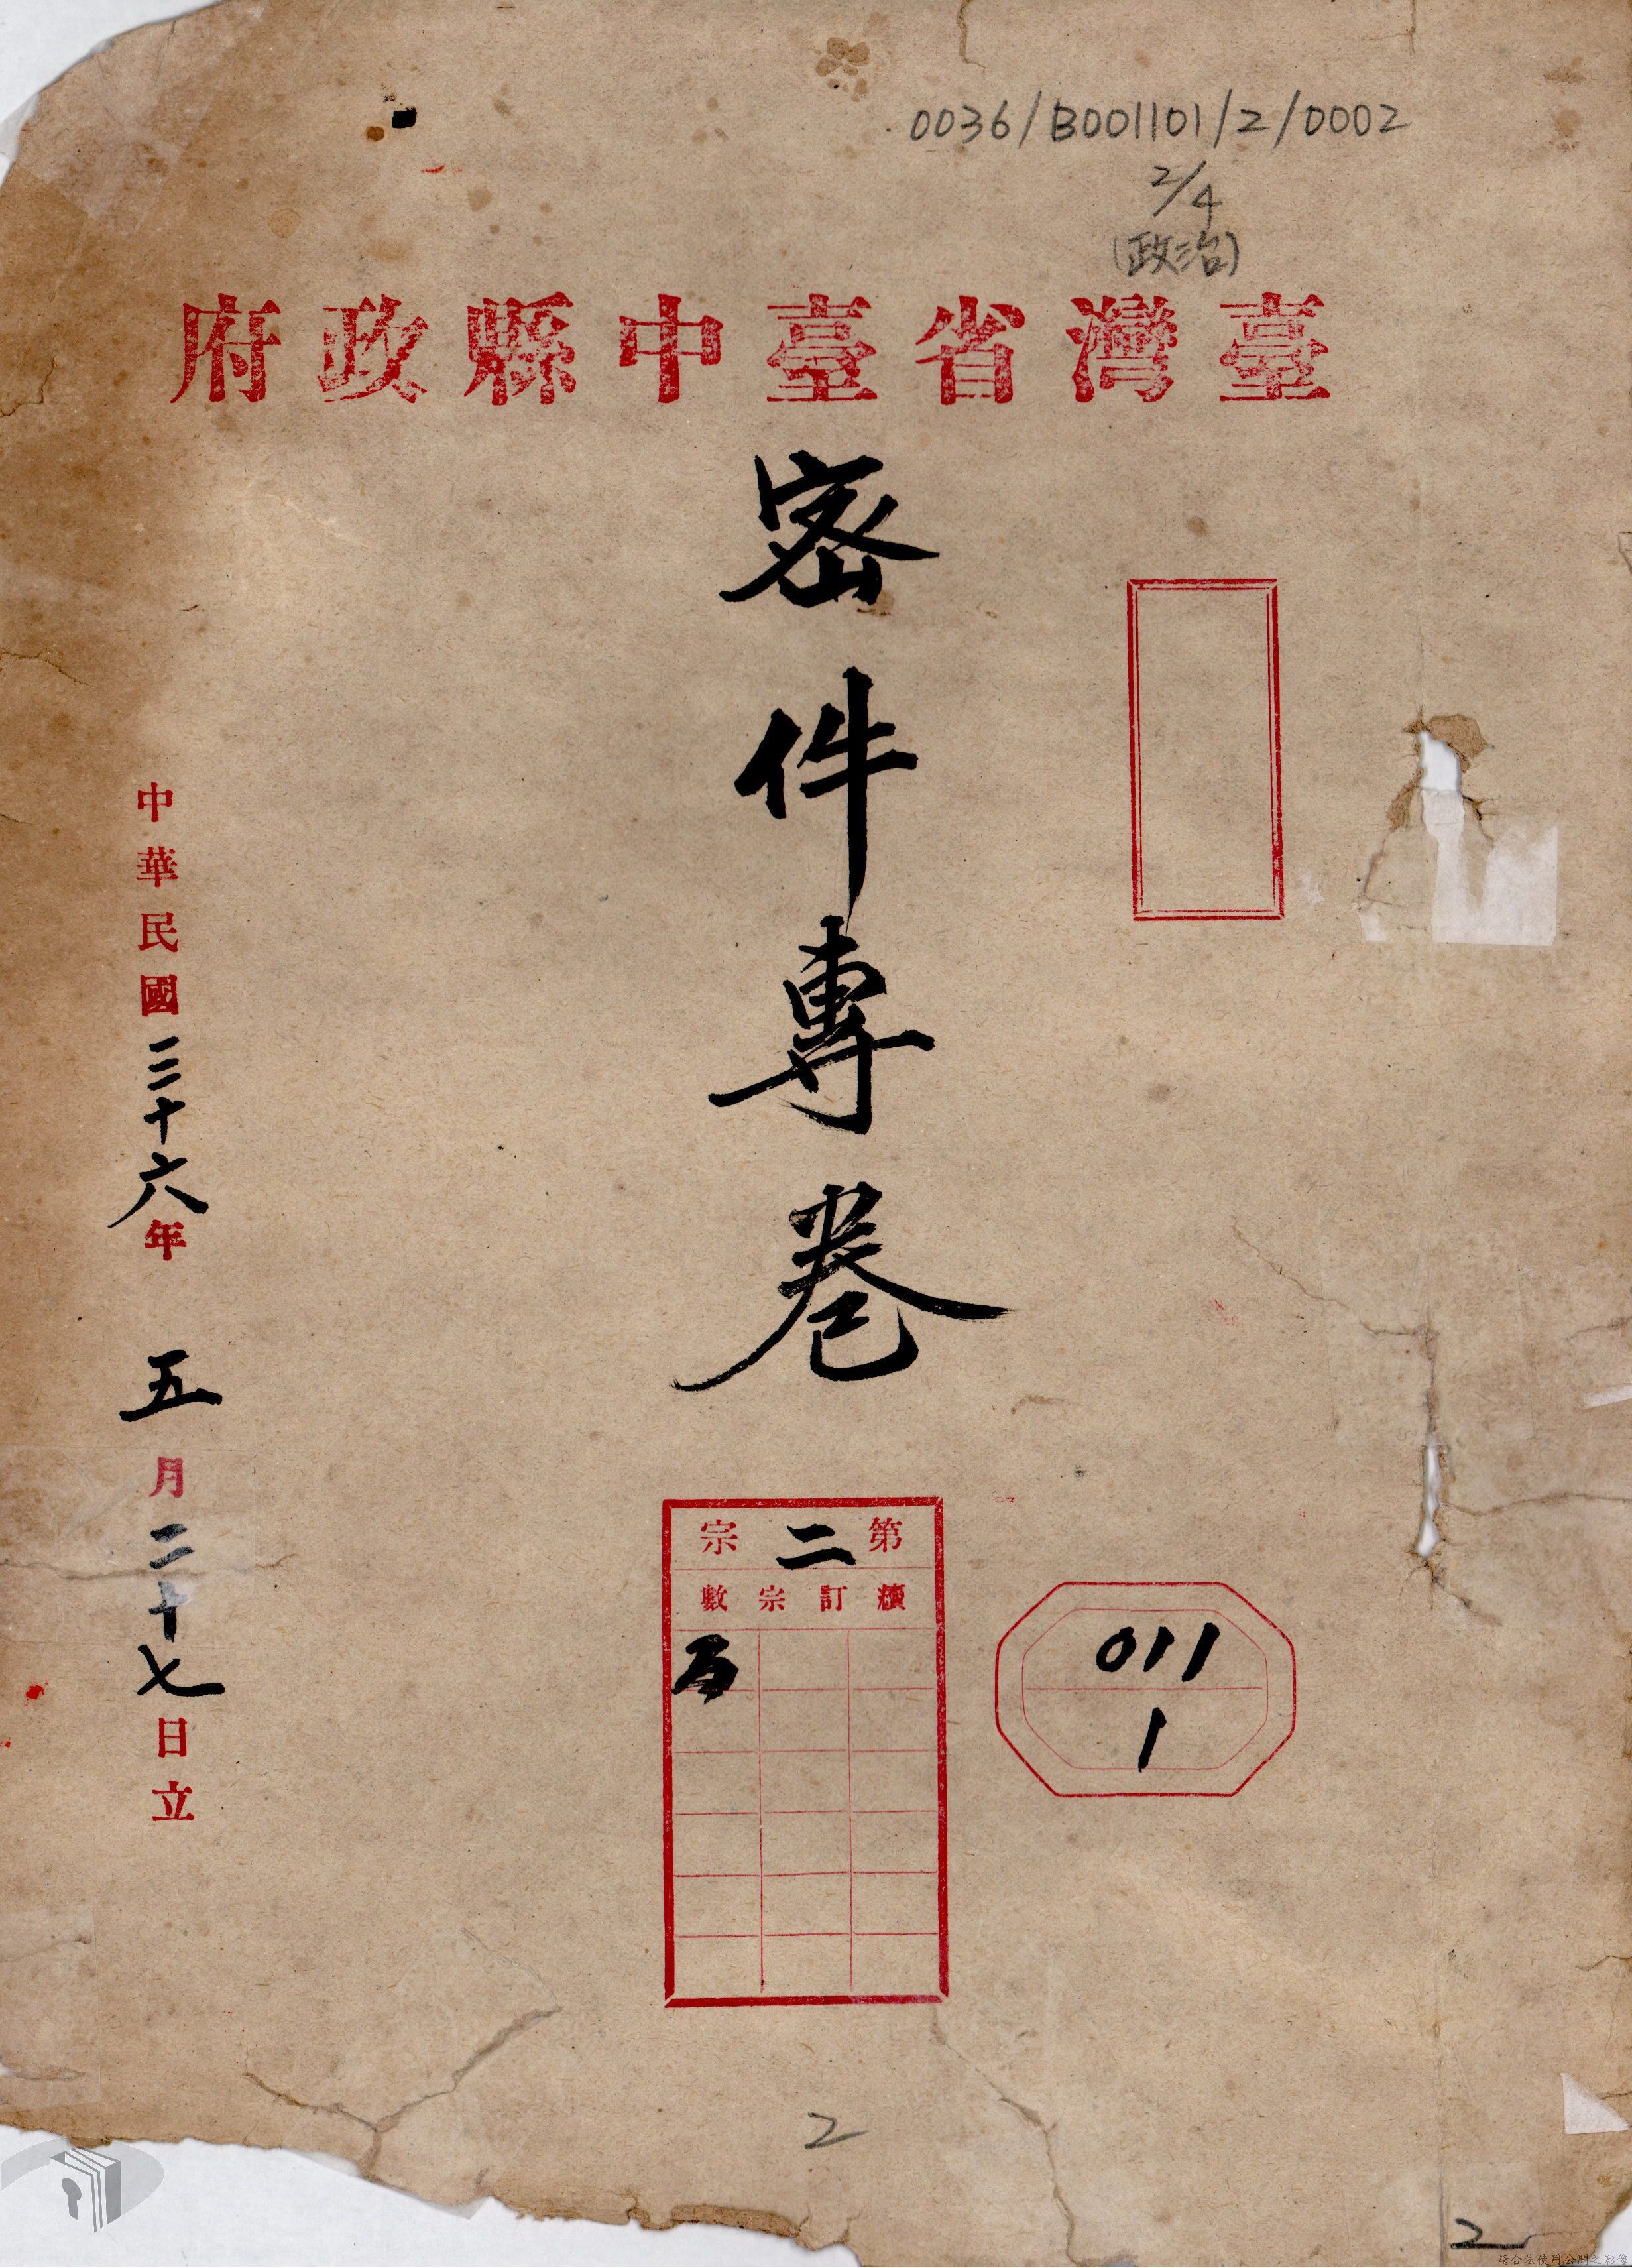 0036/B001101/2/0002
2/4
(政治)
臺灣省臺中縣政府
密件專卷
中華民國三十六年 五月二十七日立
第二宗
續訂宗數
011
1
2
2
請合法使用公開之影像